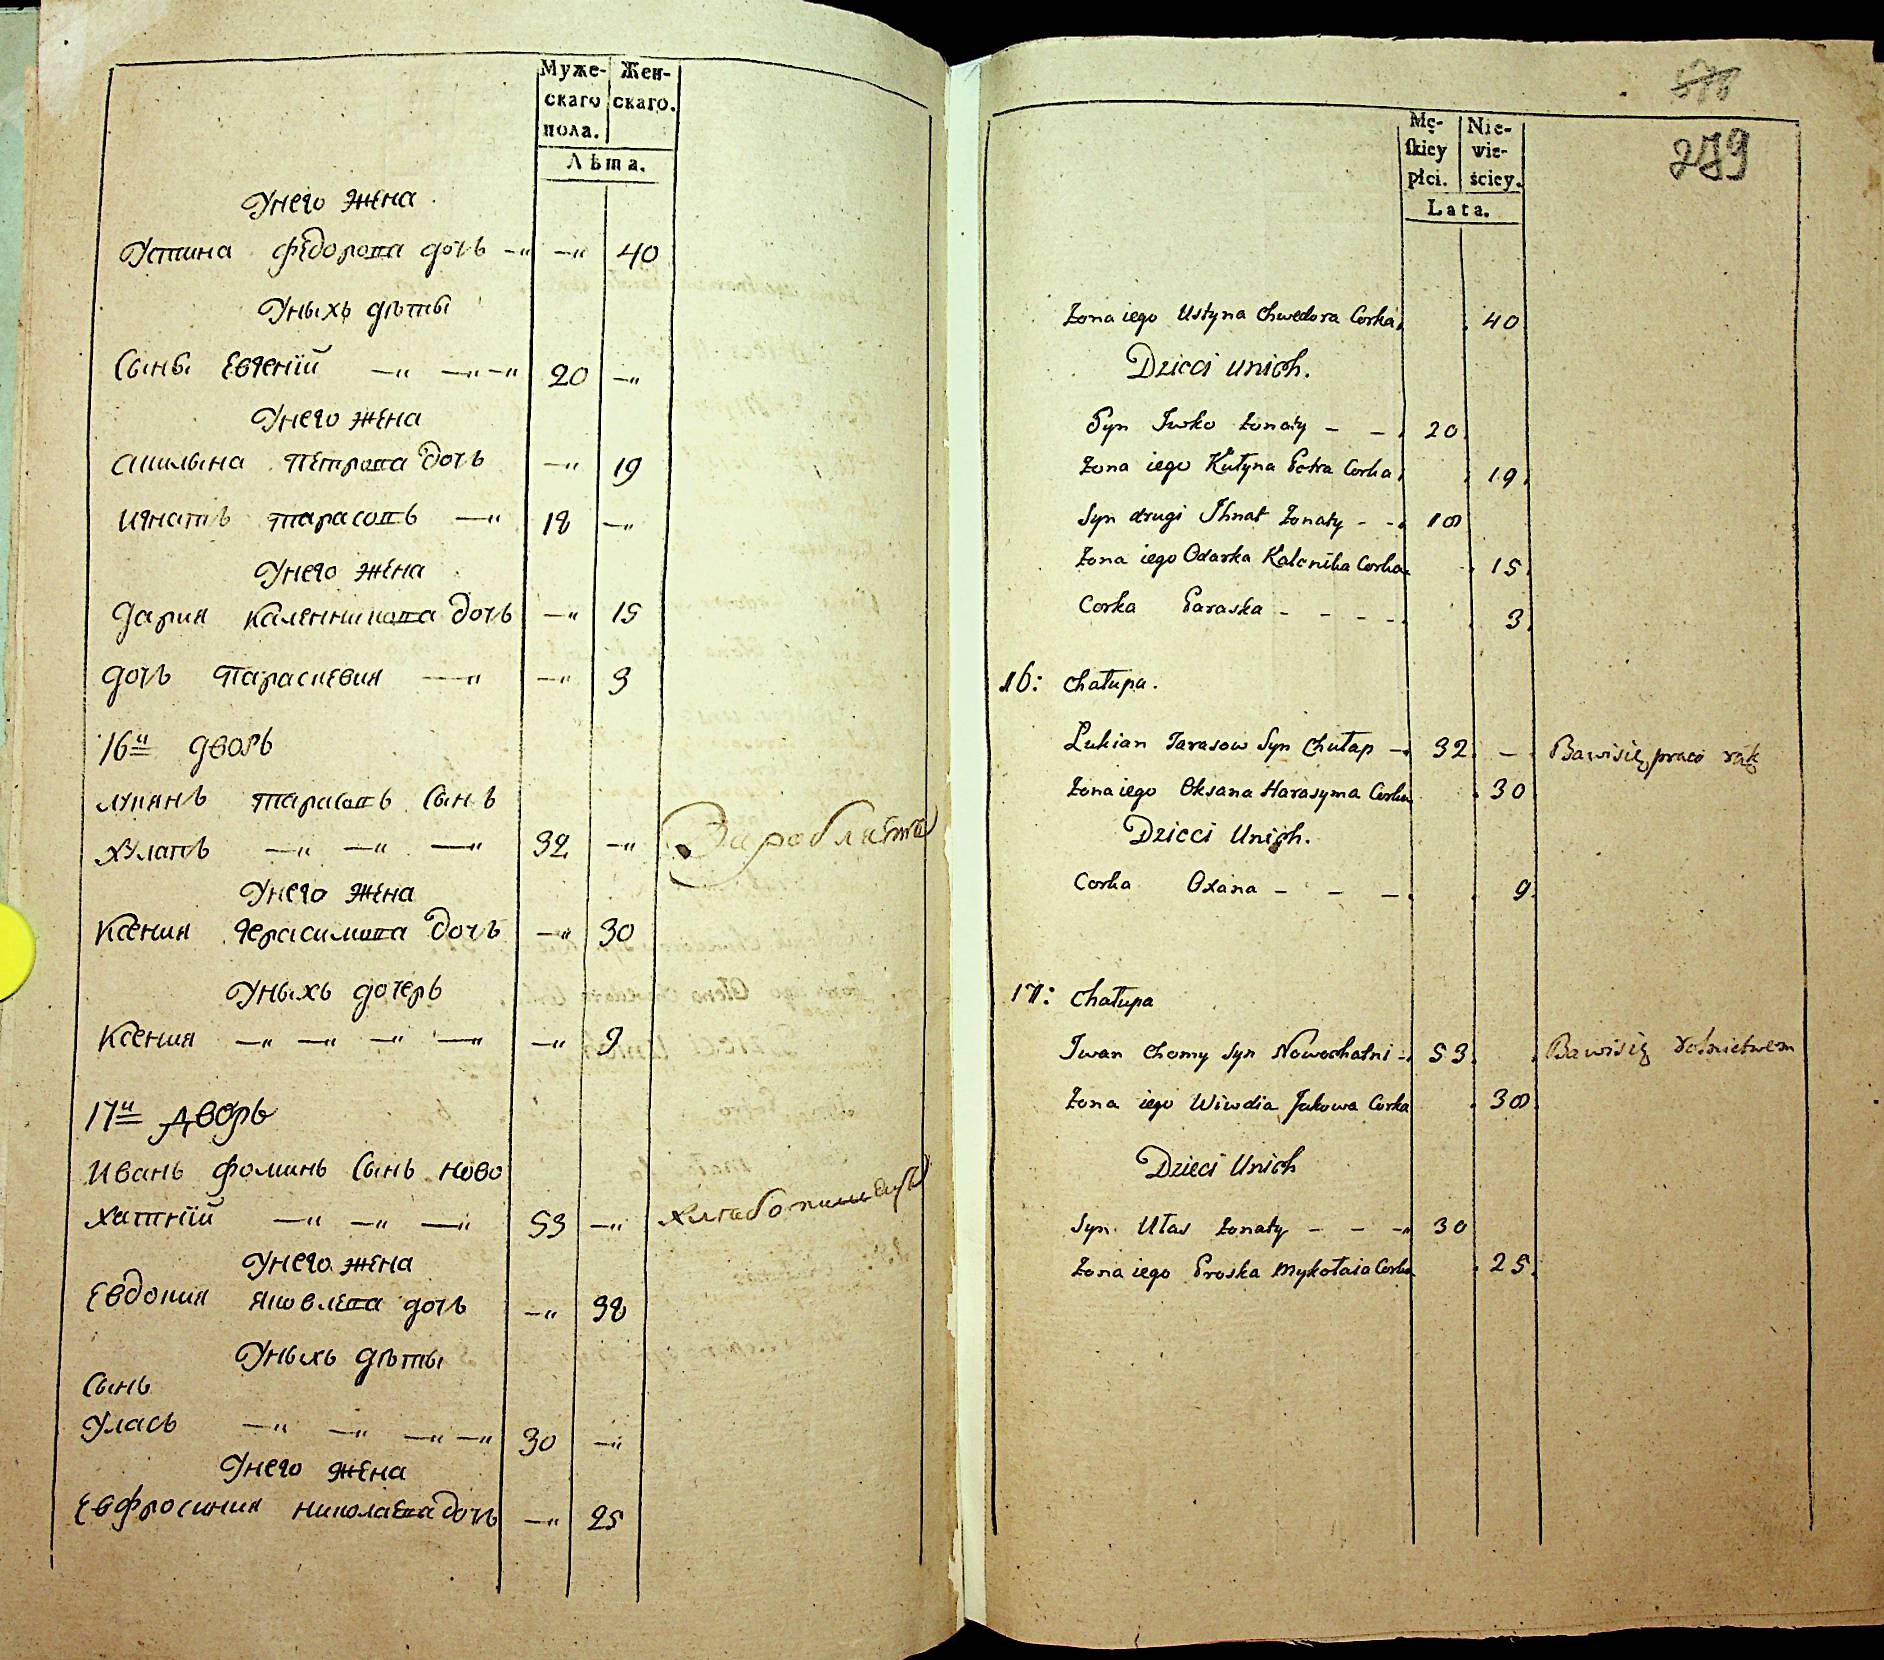 Муже-
скаго
пола.
Жен-
скаго.
Лѣта.
Унего жена
Устина Федорова дочь 40
Уныхъ дѣты
Сынъ Евгений 20
Унего жена
Акилына Петрова дочь 19
Игнатъ Тарасовъ 18
Унего жена
Дария Каленникова дочь 15
дочь Параскевия 3
16й дворъ
Лукянъ Тарасовъ Сынъ
Хулапъ 32
Унего жена
Ксения Герасимова дочь 30
Уныхъ дочерь
Ксения 9
17й дворъ
Иванъ Фоминъ Сынъ Ново
хатний 53
Унего жена
Евдокия Яковлева дочь 38
Уныхъ дѣты
Сынъ
Уласъ 30
Унего жена
Евфросиния Николаева дочь 25
279
Mę-
skiey
płci.
Nie-
wie-
ściey.
Lata.
Żona iego Ustyna Chwedora Corka 40
Dzieci Unich.
Syn Iwko żonaty 20
Żona iego Kulyna Petra Corka 19
Syn drugi Ihnat żonaty 18
Żona iego Odarka Kalenika Corka 15
Corka Paraska 3
16: Chałupa.
Lukian Tarasow Syn Chułap 32 Bawisię praco rąk
Żona iego Oksana Harasyma Corka 30
Dzieci Unich.
Corka Oxana 9
17: Chałupa
Iwan Chomy Syn Nowochatni 53 Bawisię rolnictwem
Żona iego Wiwdia Jakowa Corka 38
Dzieci Unich
Syn Ułas żonaty 30
Żona iego Proska Mykołaia Corka 25